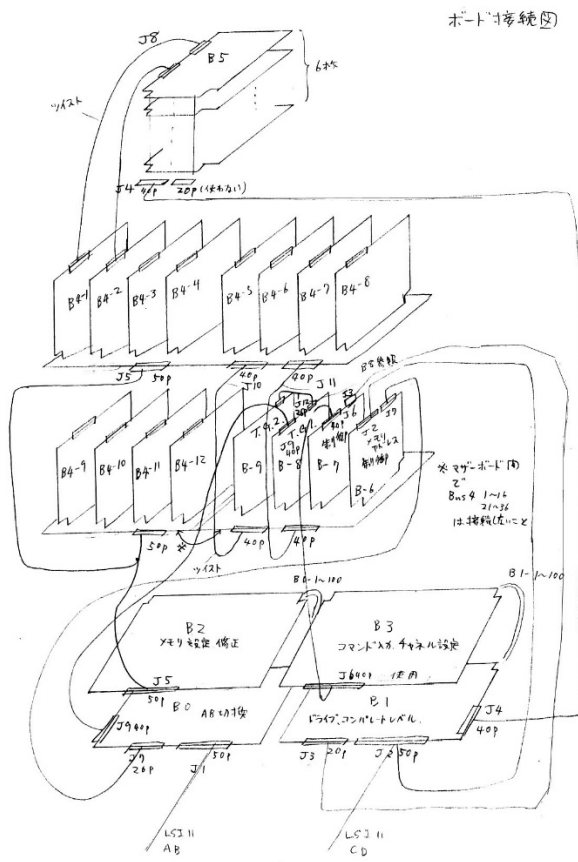 ボード接続図
J8
B5
6枚
ツイスト
J4 40p 20p(使わない)
B4-1
B4-2
B4-3
B4-4
B4-5
B4-6
B4-7
B4-8
J5 50p
40p
40p
J10
J11
B4-9
B4-10
B4-11
B4-12
B-9
T.G.2.
B-8
T.G.1.
J9
40p
B-7
制御
J6
J3
J2
メモリ
アドレス
制御
B-6
J7
※マザーボード間
で
Bus 4 1~16
21~36
は接続しないこと
50p
※
ツイスト
40p
40p
B0-1~100
B1-1~100
B2
メモリ設定 修正
B3
コマンド入力.チャネル設定
J5
50p
J6 40p 使用
B0
AB切換
B1
ドライブ、コンパレートレベル.
J9 40p
J7
26p
J1
50p
J3
20p
J2
50p
J4
40p
LSI 11
AB
LSI 11
CD